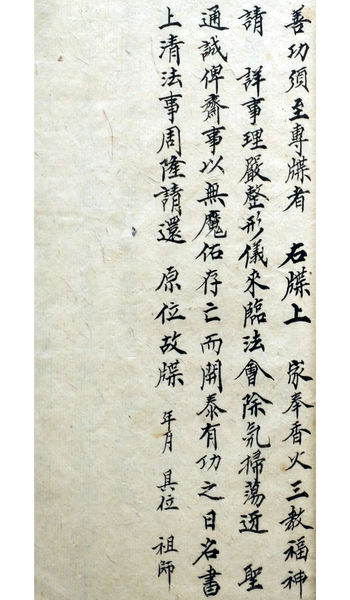 善功須至專牒者 右牒上 家奉香火三教福神
請 詳事理嚴整形儀來臨法會除氛掃蕩迎 聖
通誠俾齋事以無魔佑存亡而開泰有功之日名書
上清法事周隆請還 原位故牒 年月 具位 祖師